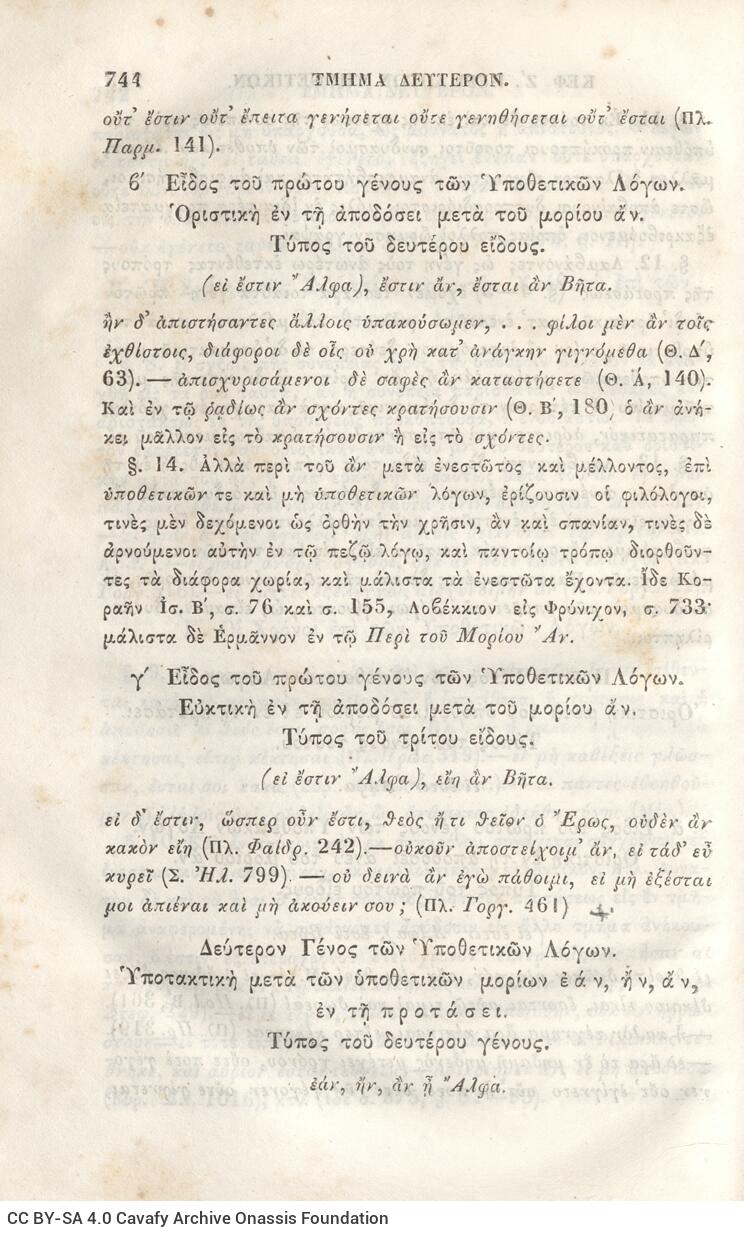 744 ΤΜΗΜΑ ΔΕΥΤΕΡΟΝ.
οὔτ' ἔστιν οὔτ' ἔπειτα γενήσεται οὔτε γενηθήσεται οὔτ' ἔσται (Πλ.
Παρμ. 141).
ϐ′ Εἶδος τοῦ πρώτου γένους τῶν Ὑποθετικῶν Λόγων.
Ὁριστικὴ ἐν τῇ ἀποδόσει μετὰ τοῦ μορίου ἄν.
Τύπος τοῦ δευτέρου εἴδους.
(εἰ ἔστιν Ἄλφα), ἔστιν ἄν, ἔσται ἂν Βῆτα.
ἢν δ' ἀπιστήσαντες ἄλλοις ὑπακούσωμεν, . . . φίλοι μὲν ἂν τοῖς
ἐχθίστοις, διάφοροι δὲ οἷς οὐ χρὴ κατ' ἀνάγκην γιγνόμεθα (Θ. Δ′,
63). — ἀπισχυρισάμενοι δὲ σαφὲς ἂν καταστήσετε (Θ. Ά, 140).
Καὶ ἐν τῷ ῥᾳδίως ἂν σχόντες κρατήσουσιν (Θ. Β′, 180) ὁ ἂν ἀνή-
κει μᾶλλον εἰς τὸ κρατήσουσιν ἢ εἰς τὸ σχόντες.
§. 14. Ἀλλὰ περὶ τοῦ ἂν μετὰ ἐνεστῶτος καὶ μέλλοντος, ἐπὶ
ὑποθετικῶν τε καὶ μὴ ὑποθετικῶν λόγων, ἐρίζουσιν οἱ φιλόλογοι,
τινὲς μὲν δεχόμενοι ὡς ὀρθὴν τὴν χρῆσιν, ἂν καὶ σπανίαν, τινὲς δὲ
ἀρνούμενοι αὐτὴν ἐν τῷ πεζῷ λόγῳ, καὶ παντοίῳ τρόπῳ διορθοῦν-
τες τὰ διάφορα χωρία, καὶ μάλιστα τὰ ἐνεστῶτα ἔχοντα. Ἴδε Κο-
ραῆν Ἰσ. Β′, σ. 76 καὶ σ. 155, Λοϐέκκιον εἰς Φρύνιχον, σ. 733·
μάλιστα δὲ Ἑρμᾶννον ἐν τῷ Περὶ τοῦ Μορίου Ἄν.
γ′ Εἶδος τοῦ πρώτου γένους τῶν Ὑποθετικῶν Λόγων.
Εὐκτικὴ ἐν τῇ ἀποδόσει μετὰ τοῦ μορίου ἄν.
Τύπος τοῦ τρίτου εἴδους.
(εἰ ἔστιν Ἄλφα), εἴη ἂν Βῆτα.
εἰ δ' ἔστιν, ὥσπερ οὖν ἔστι, θεὸς ἤ τι θεῖον ὁ Ἔρως, οὐδὲν ἂν
κακὸν εἴη (Πλ. Φαῖδρ. 242).—οὐκοῦν ἀποστείχοιμ' ἄν, εἰ τάδ' εὖ
κυρεῖ (Σ. Ἠλ. 799). — οὐ δεινὰ ἂν ἐγὼ πάθοιμι, εἰ μὴ ἐξέσται
μοι ἀπιέναι καὶ μὴ ἀκούειν σου; (Πλ. Γοργ. 461)
Δεύτερον Γένος τῶν Ὑποθετικῶν Λόγων.
Ὑποτακτικὴ μετὰ τῶν ὑποθετικῶν μορίων ἐάν, ἤν, ἄν,
ἐν τῇ προτάσει.
Τύπος τοῦ δευτέρου γένους.
ἐάν, ἤν, ἂν ᾖ Ἄλφα.
CC BY-SA 4.0 Cavafy Archive Onassis Foundation